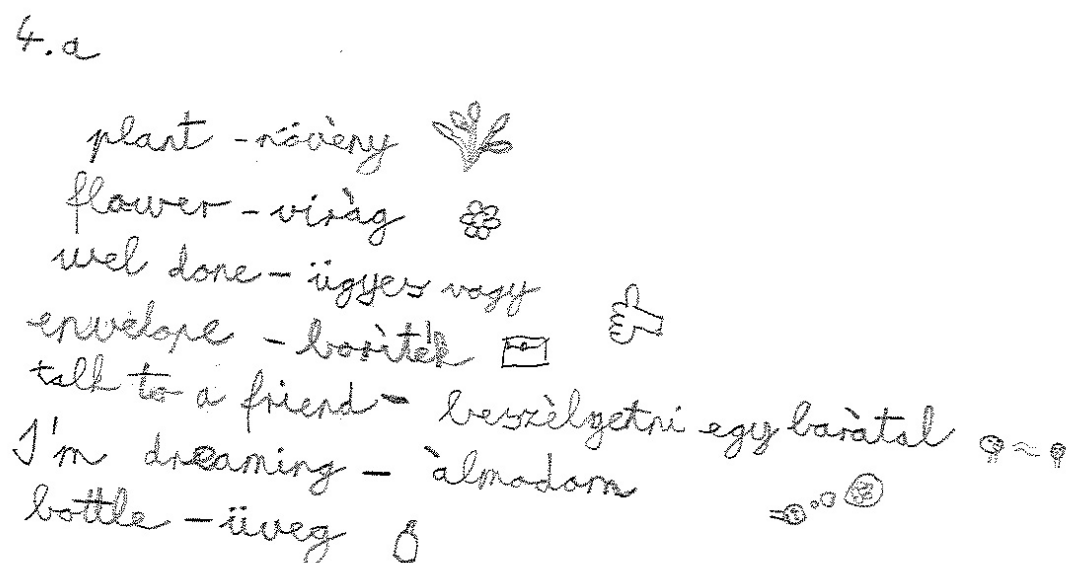 4. a
plant - növèny
flower - viràg
wel done - ügyes vagy
envelope - borìték
talk to a friend - beszèlgetni egy baràtal
I'm dreaming - àlmodom
bottle - üveg